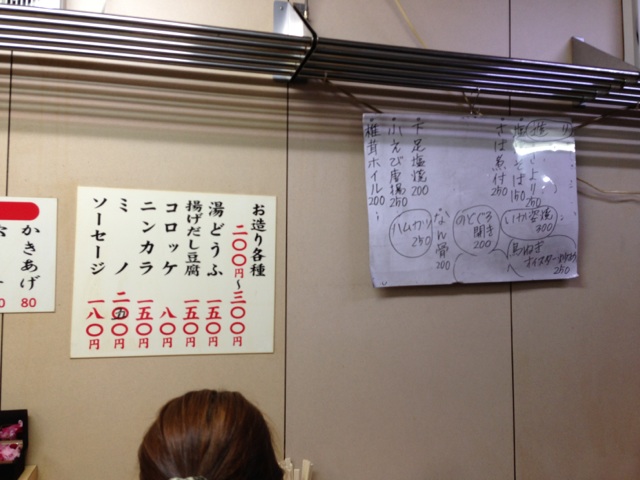 お造り各種
二〇〇円〜三〇〇円
湯どうふ 一五〇円
揚げだし豆腐 一五〇円
コロッケ 八〇円
ニンカラ 一五〇円
ミノ 二五〇円
ソーセージ 一八〇円
かきあげ
80
造り
さより
250
塩さば
150
さば煮付
250
下足塩焼
200
小えび唐揚
250
椎茸ホイル
200
いか沓焼
200
のどぐろ
開き
200
なん骨
200
ハムカツ
250
250